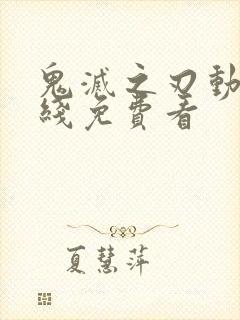 鬼滅之刃動
綫免費看
夏慧萍